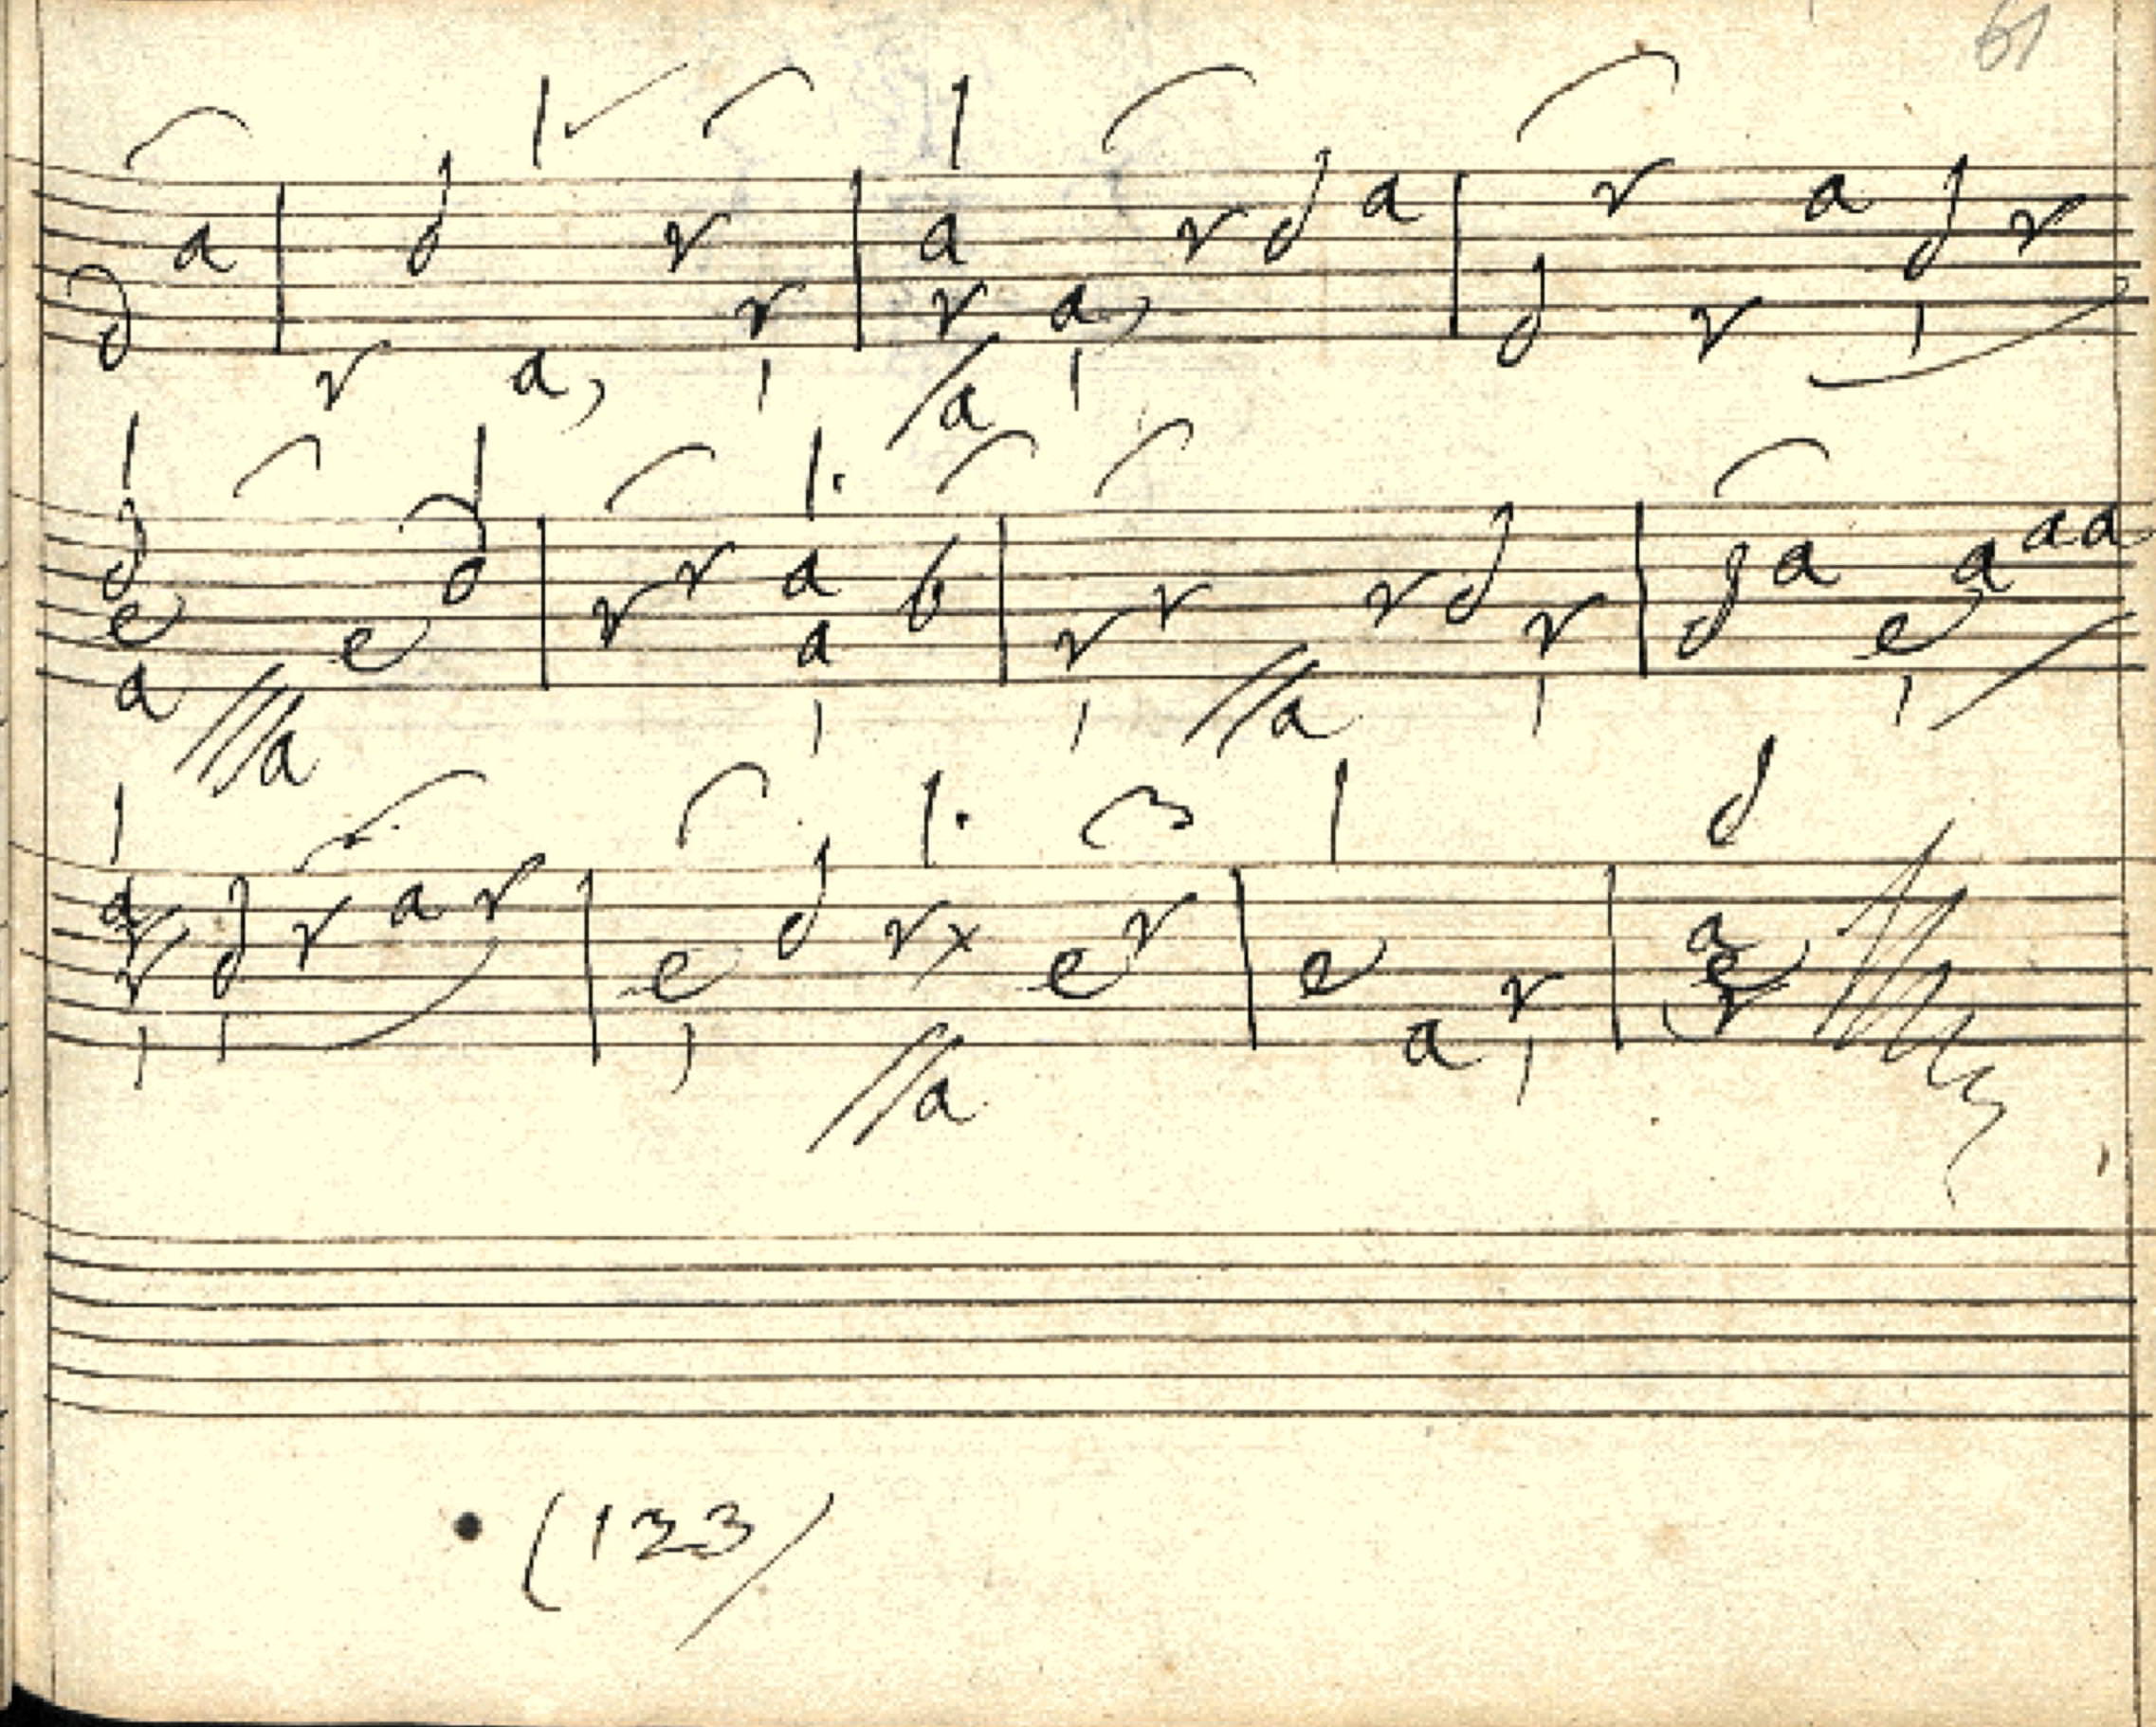 61
a d r a r d a r a d r
d r a, r r a, d r
a a
d d r r a b r r d r d a a a a
e e a e
a a a
a d r a r e d r x e r e a r d
r a e r
a
(123)